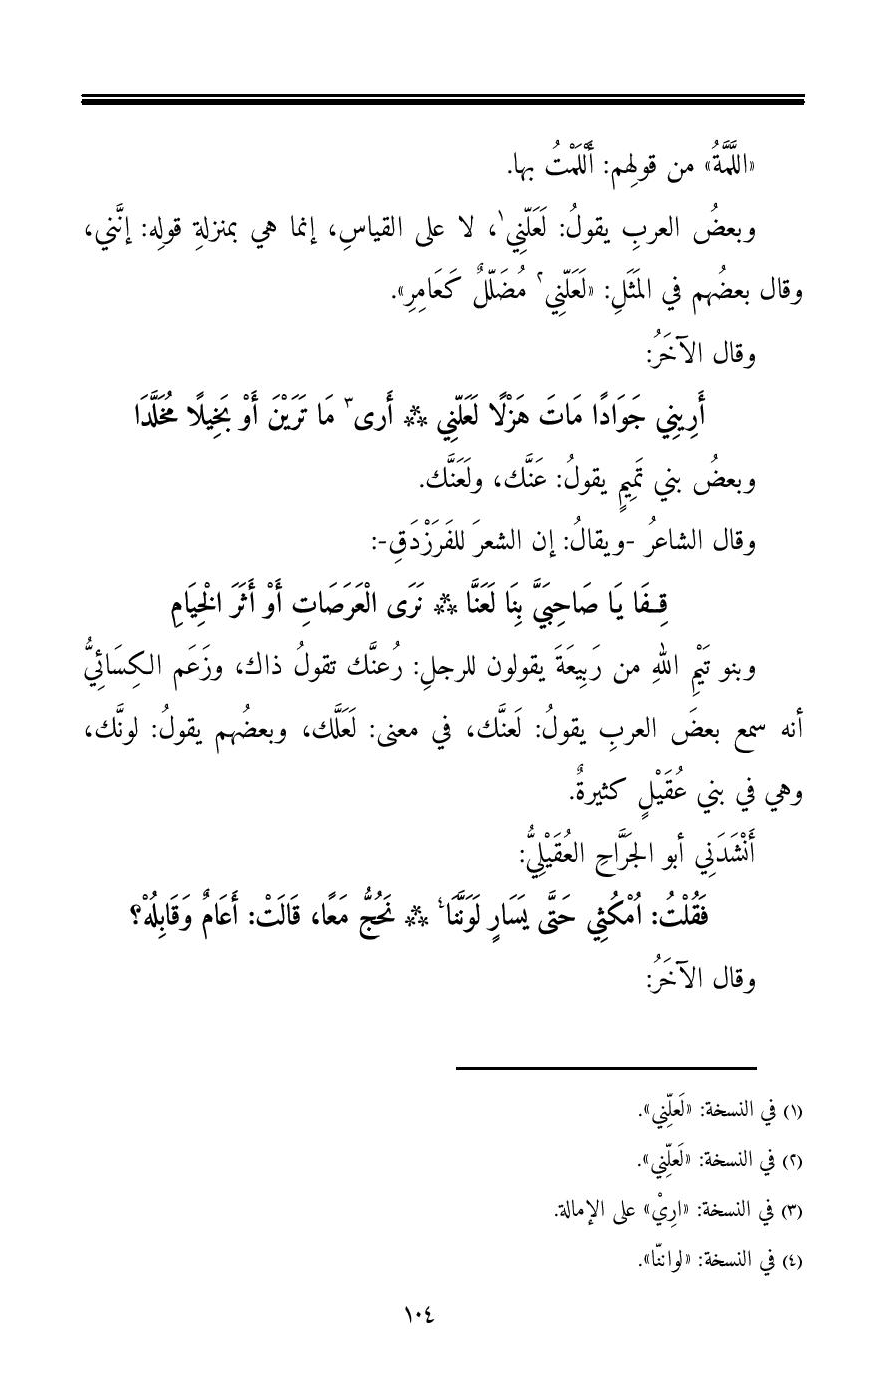 «اللَّمَّةُ» من قولِهم: أَلْمَمْتُ بها.
وبعضُ العربِ يقولُ: لَعَلّنِي١، لا على القياسِ، إنما هي بمنزلةِ قولِه: إنَّني،
وقال بعضُهم في المَثَلِ: «لَعَلّنِي٢ مُضَلّلٌ كَعَامِرِ».
وقال الآخَرُ:
أَرِينِي جَوَادًا مَاتَ هَزْلًا لَعَلّنِي ** أَرى٣ مَا تَرَيْنَ أَوْ بَخِيلًا مُخَلَّدَا
وبعضُ بني تَمِيمٍ يقولُ: عَنَّك، ولَعَنَّك.
وقال الشاعرُ -ويقالُ: إن الشعرَ للفَرَزْدَقِ-:
قِـفَا يَا صَاحِبَيَّ بِنَا لَعَنَّا ** نَرَى الْعَرَصَاتِ أَوْ أَثَرَ الْخِيَامِ
وبنو تَيْمِ اللهِ من رَبِيعَةَ يقولون للرجلِ: رُعنَّك تقولُ ذاك، وزَعَم الكِسَائِيُّ
أنه سمع بعضَ العربِ يقولُ: لَعنَّك، في معنى: لَعَلَّك، وبعضُهم يقولُ: لونَّك،
وهي في بني عُقَيْلٍ كثيرةٌ.
أَنْشَدَنِي أبو الجَرَّاحِ العُقَيْلِيُّ:
فَقُلْتُ: اُمْكُثِي حَتَّى يَسَارِ لَوَنَّنَا٤ ** نَحُجُّ مَعًا، قَالَتْ: أَعَامٌ وَقَابِلُهْ؟
وقال الآخَرُ:
(١) في النسخة: «لَعلّنِي».
(٢) في النسخة: «لَعلّنِي».
(٣) في النسخة: «ارِيْ» على الإمالة.
(٤) في النسخة: «لواننّا».
١٠٤